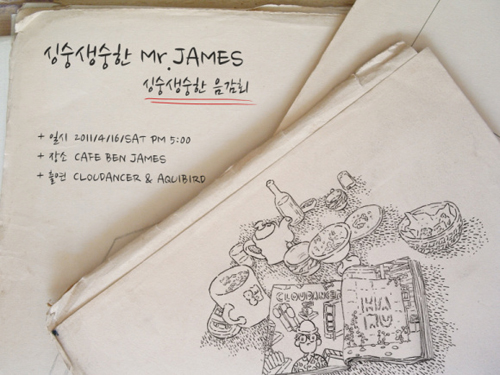 싱숭생숭한 Mr.JAMES
싱숭생숭한 음감회
+ 일시 2011/4/16/SAT PM 5:00
+ 장소 CAFE BEN JAMES
+ 출연 CLOUDANCER & AQUIBIRD
CLOUDANCER